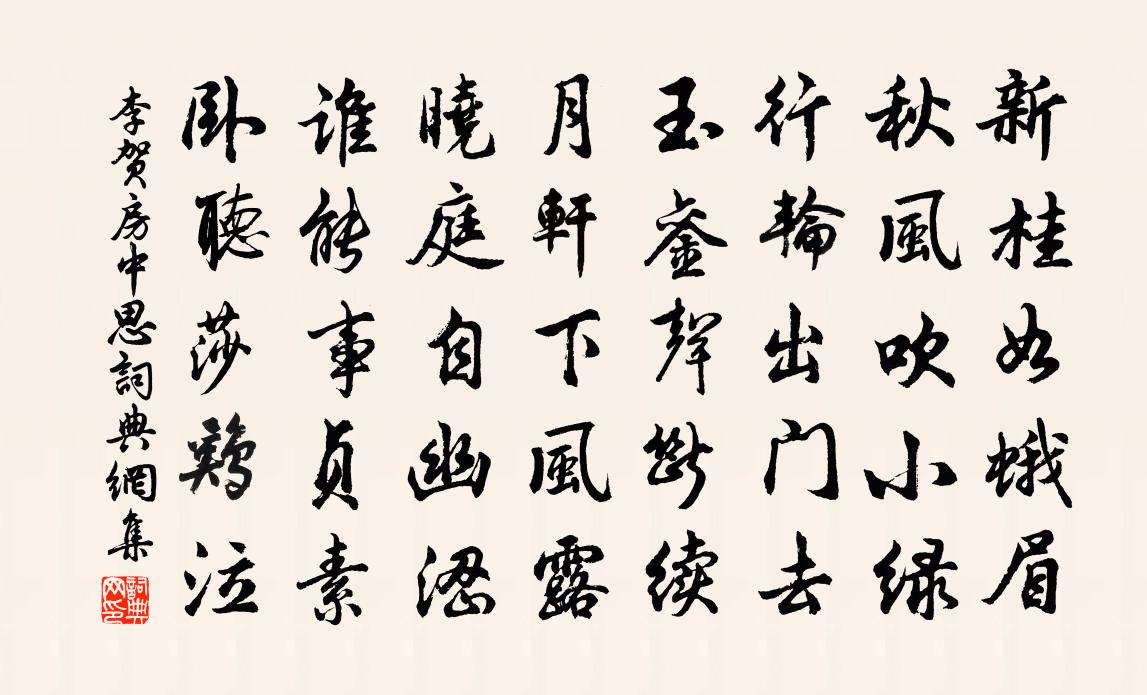 新桂如蛾眉
秋風吹小绿
行輪出门去
玉銮聲断续
月軒下風露
曉庭自幽澀
誰能事貞素
卧聽莎鷄泣
李贺房中思詞典網集
詞典网印